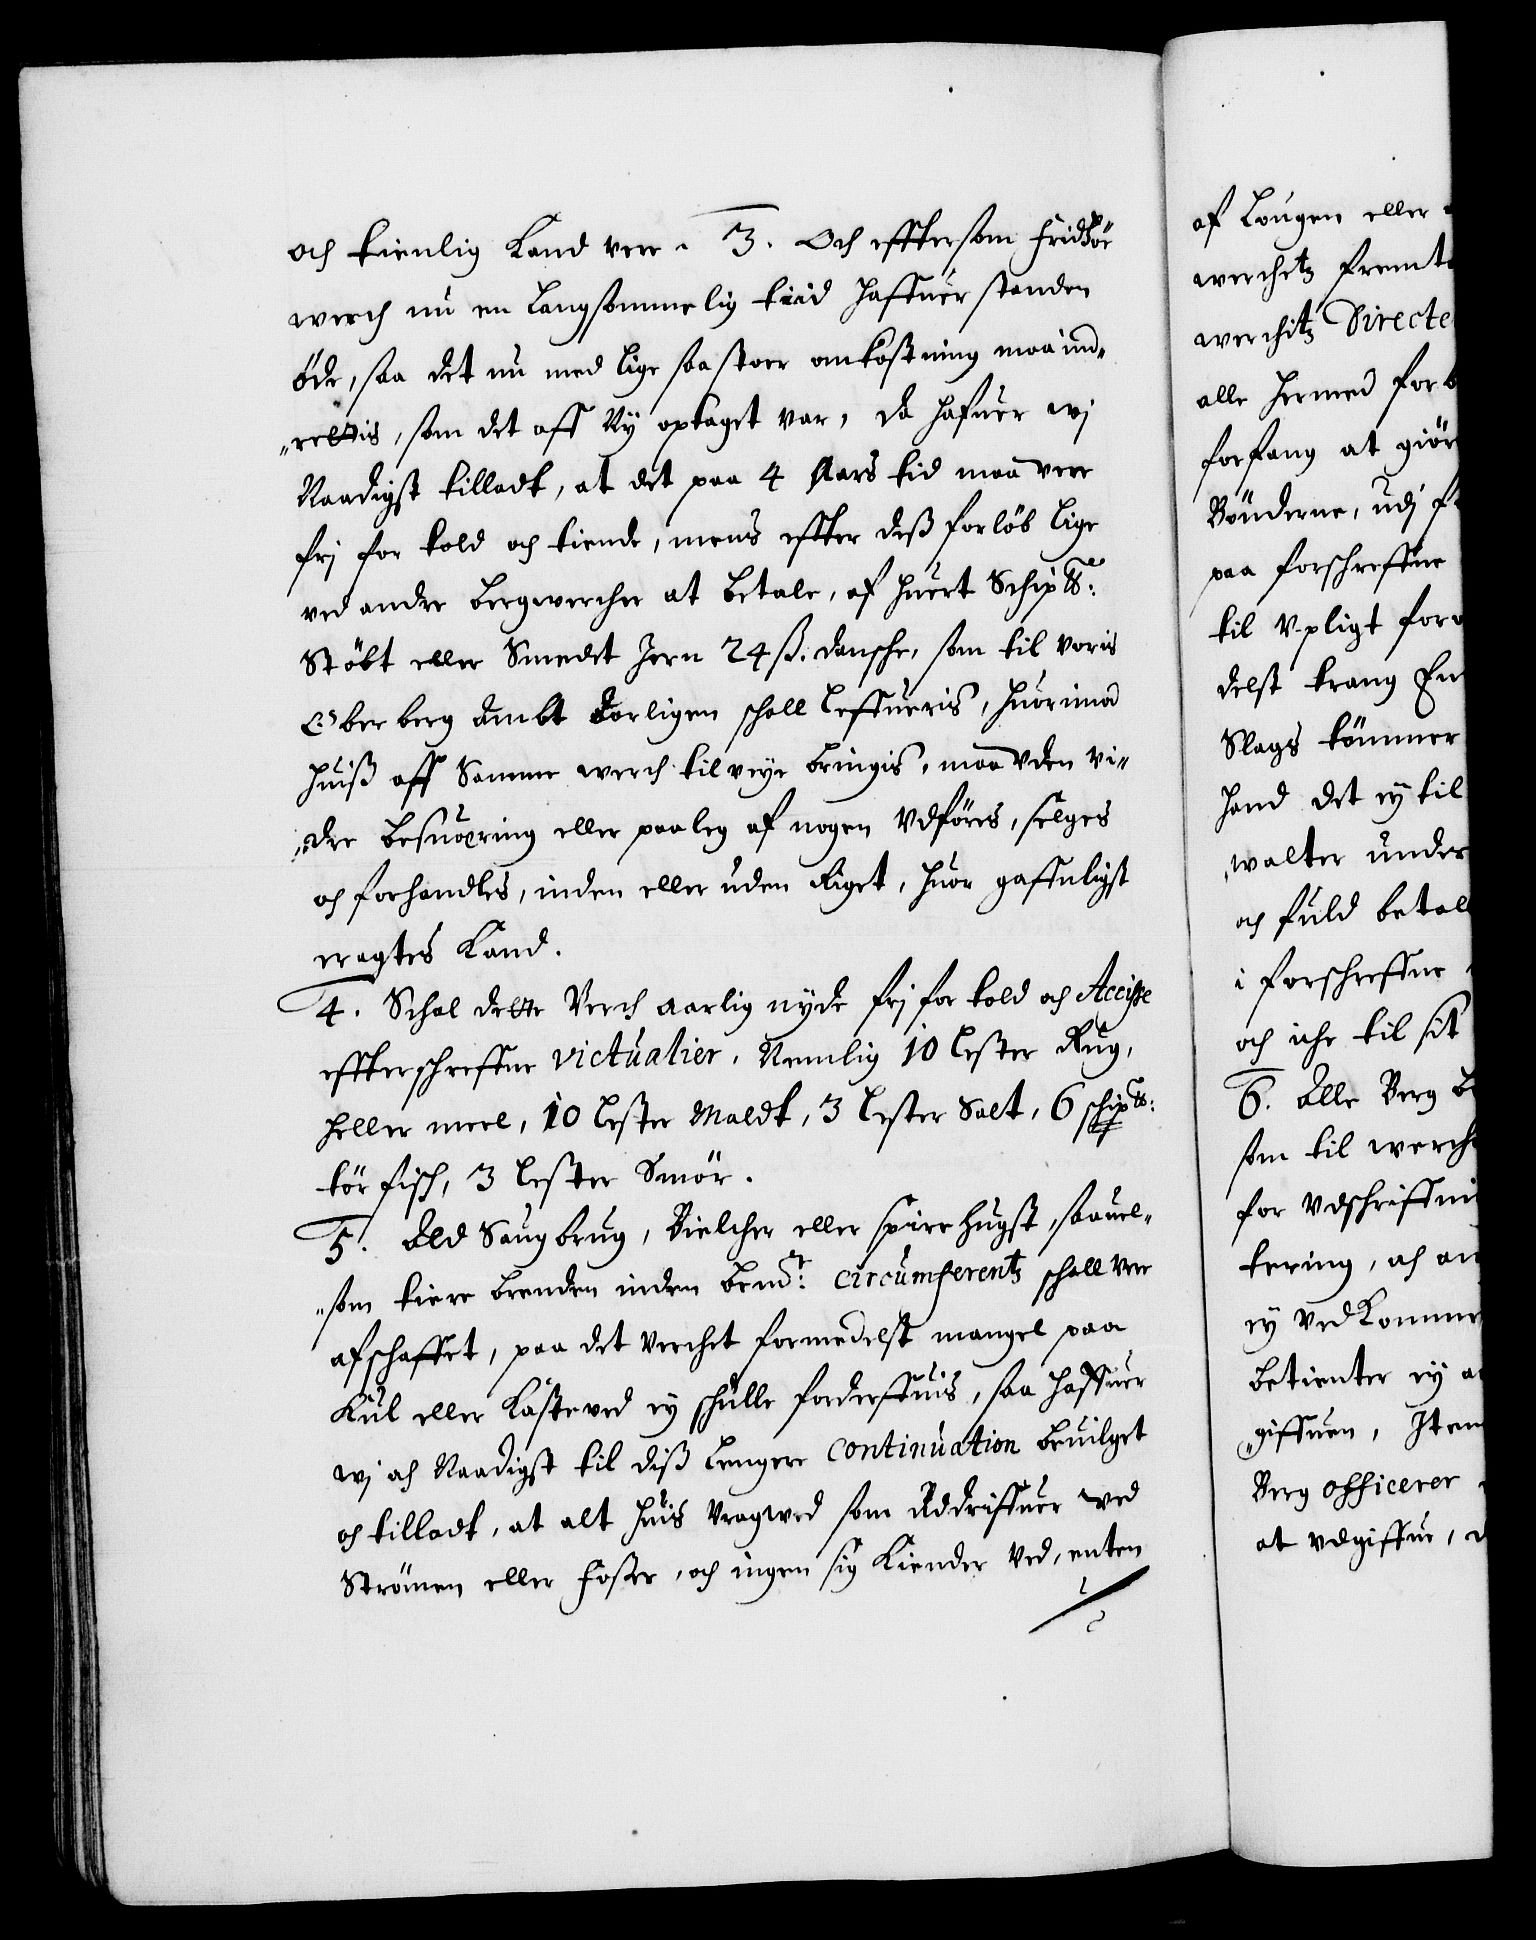 och tienlig Kand vere. 3. Och effttersom Fridsør
werch nu en langsommelig tiid haffuer standen
øde, saa det nu med lige saa stoer omkostning maa ind„
„rettis, som det aff Ny optaget var, da hafuer wj
Naadigst tilladt, at det paa 4 Aars tid maa vere
frj for told och tiende, mens effter deß forløb lige
ved andre bergwercher at betale, af huert Schip ℔:
Støbt eller Smedet Jern 24 ß. dansche, som til voris
Ober berg Ambt Aarligen schall leffueris, huorimod
huiß aff Samme werch tilveye bringis, maa vden vi„
„dre besuæring eller paaleg af nogen vdføres, selges
och forhandles, inden eller uden Riget, huor gaffnligst
eragtes Kand.
4. Schal dette Verch aarlig nyde frj for told och Accisse
effterschreffne victualier. Nemlig 10 lester Rug,
heller meel, 10 lester Maldt, 3 lester Salt, 6 schip ℔:
tør fisch, 3 lester Smør.
5. Ald Saugbrug, Bielcher eller spirre hugst, saauel„
„som tiere brenden inden bemt: circumferentz schall vere
afschaffet, paa det Verchet formedelst mangel paa
Kul eller Kasteved ey schulle forderffuis, saa haffuer
wj och Naadigst til diß lengere continuation beuilget
och tilladt, at alt huis Vragwed som Nedriffuer wed
Strømen eller Foßer, och ingen sig Kiender ved, enten
af Lougen eller
werchetz fremt
werchitz Directe
alle hermed forb
forfang at giør
Bønderne, udj
paa forschreffne
til V-pligt for
delst trang
Slags tømmer
hand det ey til
„walter under
och fuld betal
i forschreffne
och iche til sit
6. Alle Berg
som til werch
for vdschriffni
tering, och an
ey ved komme
betienter ey a
„giffuen, Item
Berg officerer
at vdgiffue,